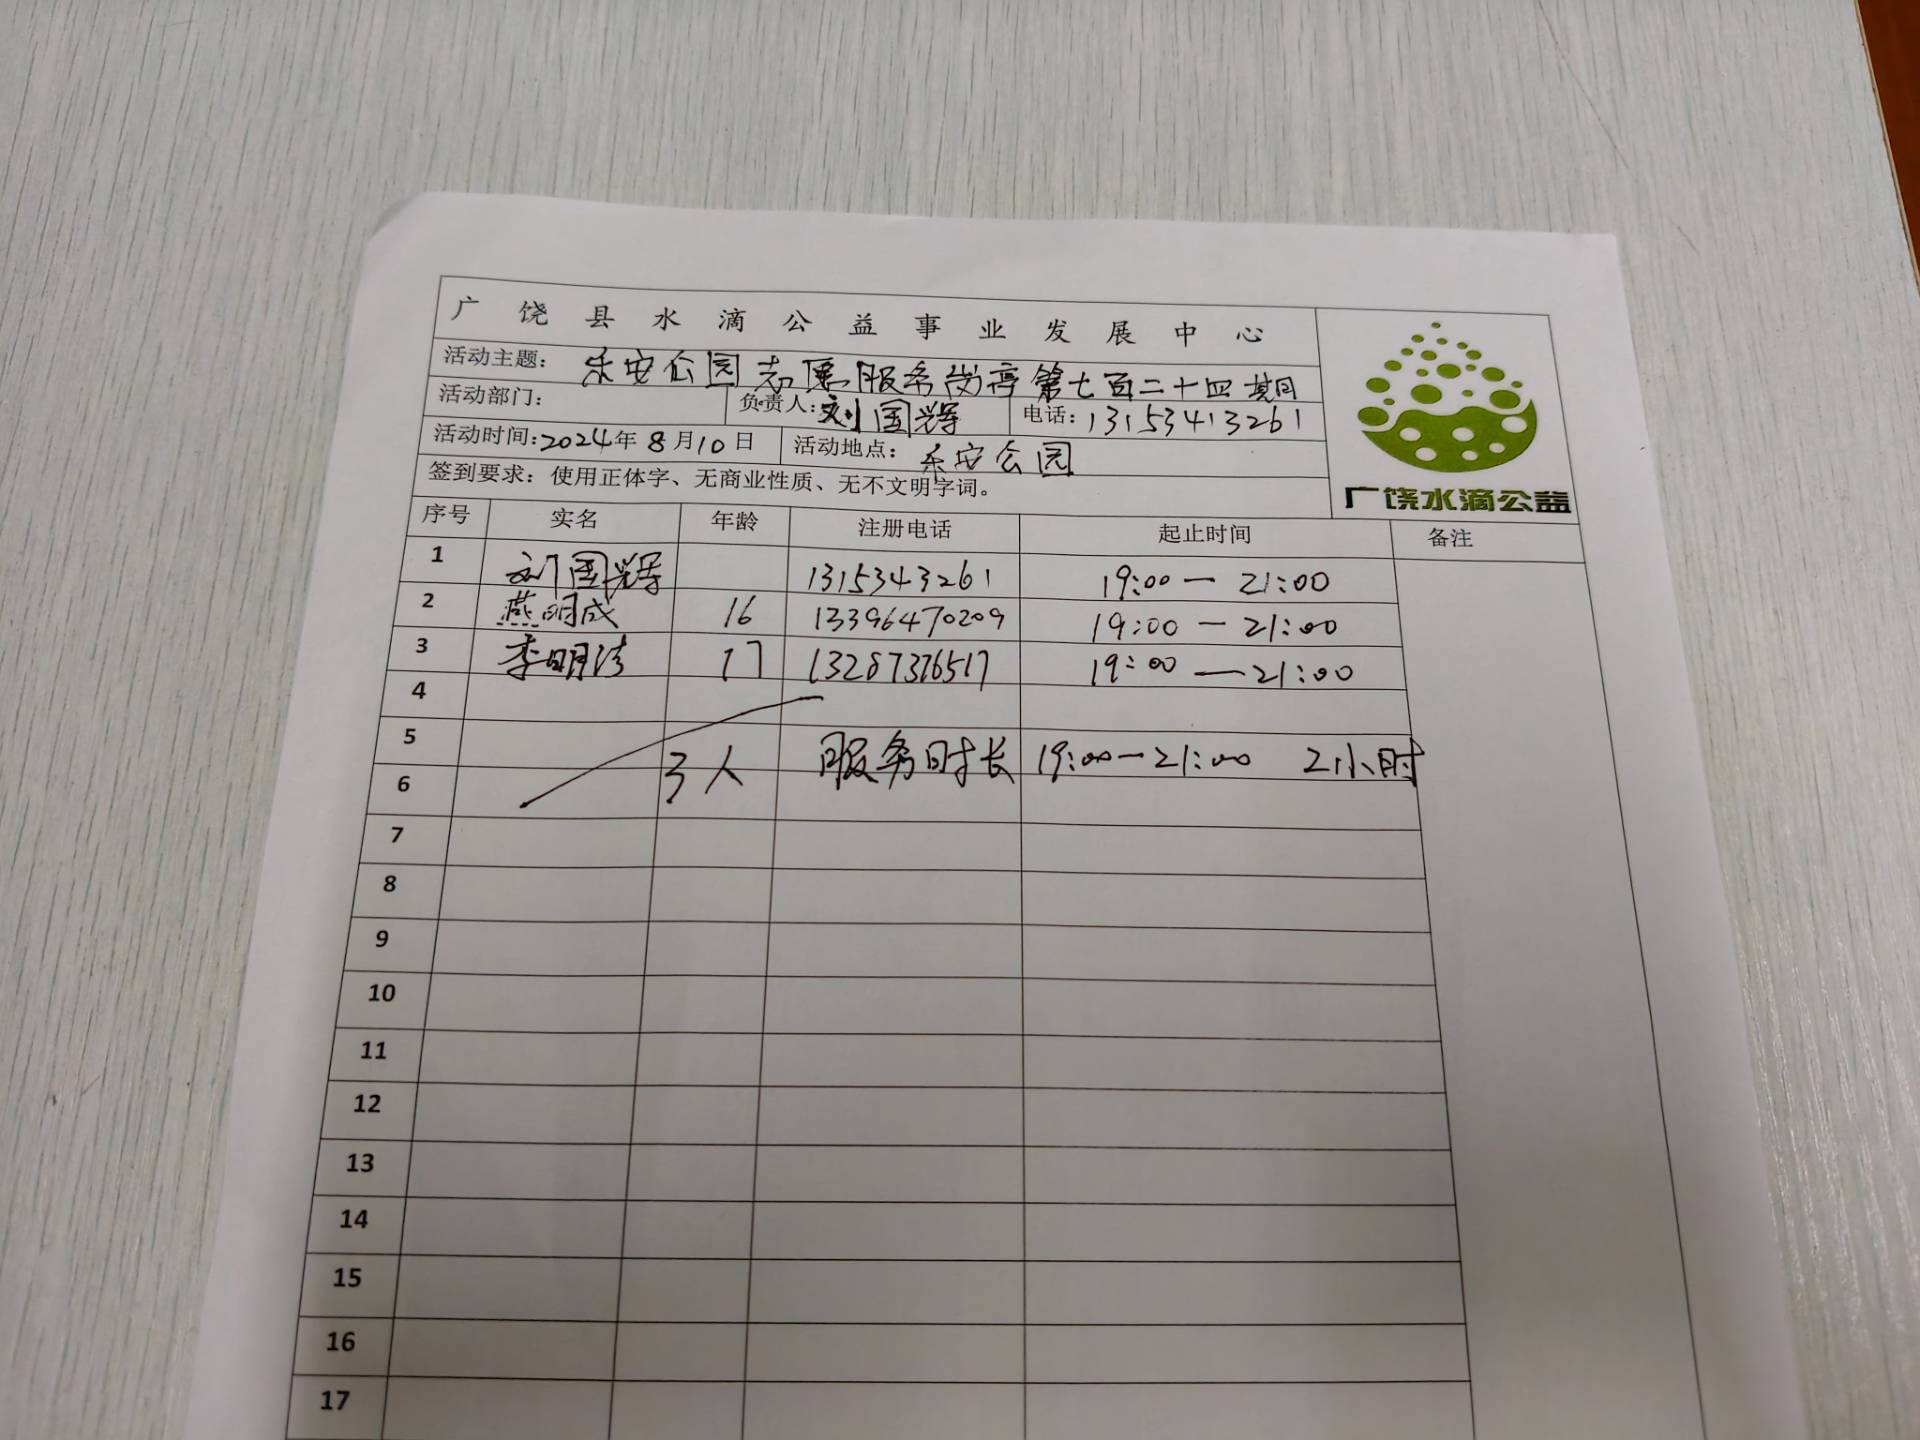 广饶县水滴公益事业发展中心
活动主题：乐安公园志愿服务岗亭第七百二十四期
活动部门： 负责人：刘国辉 电话：13153413261
活动时间：2024年8月10日 活动地点：乐安公园
签到要求：使用正体字、无商业性质、无不文明字词。
广饶水滴公益
序号 实名 年龄 注册电话 起止时间 备注
1 刘国辉 1315343261 19:00—21:00
2 燕明成 16 13396470209 19:00—21:00
3 李明洁 17 13287376517 19:00—21:00
4
5 3人 服务时长 19:00—21:00 2小时
6
7
8
9
10
11
12
13
14
15
16
17